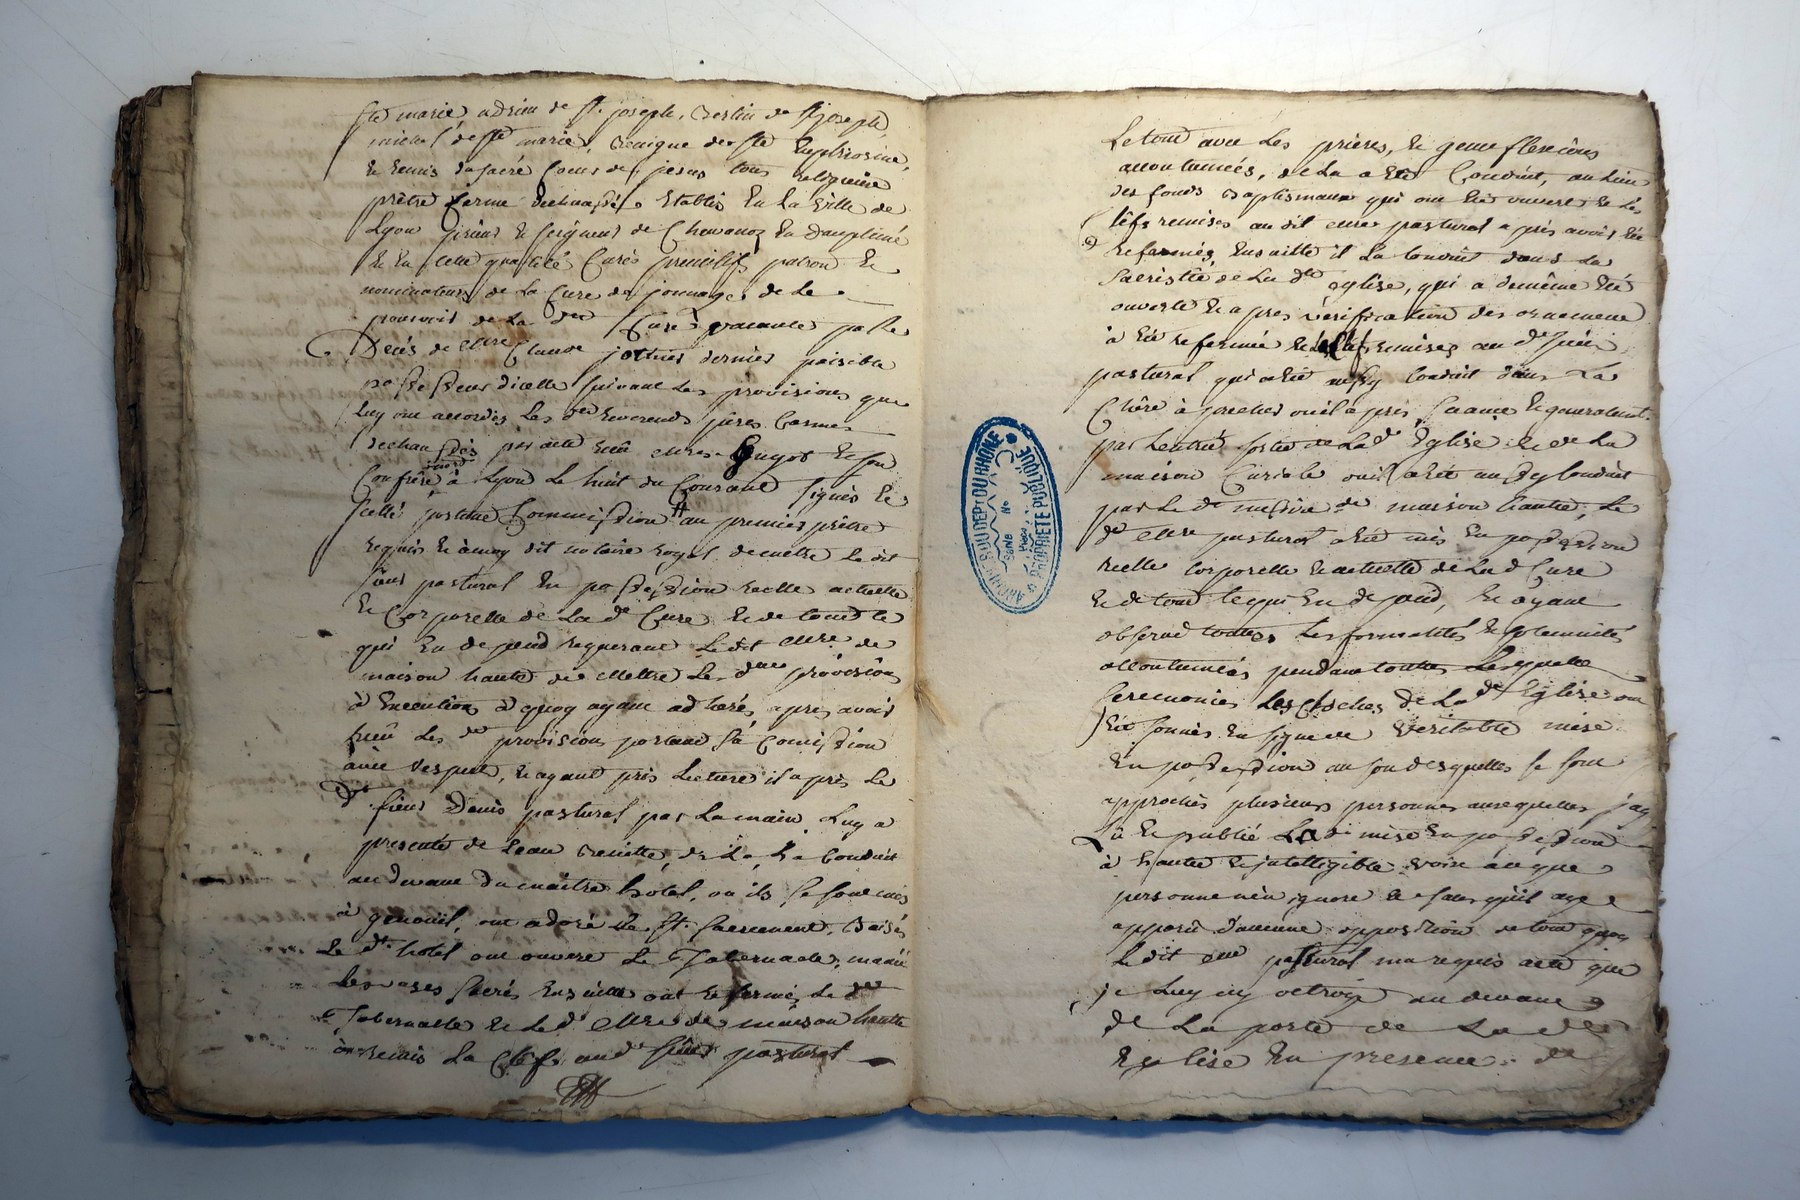 Ste marie, adrien de St. joseph, de St joseph
michel de Ste marie, de Ste Euphrosine,
& du sacré Coeur de jesus tous religieux
prêtre Carme dechaussés Etablis En La Ville de
Lyon & seigneurs de Chavanoz En Dauphiné
& En cette qualité Curés primitifs patron &
nominateurs de La Cure de jonnages de Le
pourvoir de La dte Cure vacante par le
Decés de Mre Claude dernier paisible
possesseur dicelle suivant Les provisions que
luy ont accordés Les dits Reverends peres Carmes
dechaussés par acte reçû Mres Guyot & son
Confrère à Lyon Le huit du Courant signés &
scellé portant Commission au premier prêtre
requis & à moy dit notaire royal de mettre Le dit
sieur pastural En possession reelle actuelle
& Corporelle de La dte Cure & de tout ce
qui En depend requerant Ledit Mre de
maison haute de Mettre Les dtes provisions
à Execution à quoy ayant adheré, apres avoir
Les dtes provisions portant sa Comission
avec respect, & ayant pris Lecture il a pris Le
dt sieur Denis pastural par La main, Luy a
presenté de Leau benitte, de La La Conduit
au devant du maitre hotel, ou ils se sont mis
à genouil, ont adoré Le St. Sacrement, Baisé
Le dt hotel ont ouvert Le Tabernacle, manié
Les vases sacrés Ensuitte ont refermé Le dt
Tabernacle & Le dt Mre de maison haute
à remis La Clef au dt sieur pastural
Le tout avec Les prieres, & genuflexions
accoutumées, de La a Eté Conduit, au Lieu
des fonds Baptismaux qui ont Eté ouvert & Les
Clefs remises au dit Mre pastural apris avoir Eté
refermés, Ensuitte il La Conduit dans La
Sacristie de La dte eglise, qui a demême Eté
ouverte & apres vérification des ornement
à Eté refermée & Clefs remises au dt Sieur
pastural qui a Eté aussy Conduit dans La
Chère à precher ou il a pris &
par Lentrée sortie de La dte Eglise & de La
maison Curiale ou il a Eté aussy Conduit
par Le dt messire de maison haute, Le
dt Mre pastural a Eté mis En possession
reelle corporelle & actuelle de La dte Cure
& de tout ce qui En depend, & ayant
observé toutes Les formalités & solemnités
accoutumées pendant toutes Lesquelles
Ceremonies Les Cloches de La dte Eglise ont
Eté sonnés En signe de Veritable mise
En possession au son desquelles se sont
approchés plusieurs personnes auxquelles jay
Lû & publié La dte mise En possession
à haute & intelligible voix à ce que
personne nen ignore & sans quil aye
apparû daucune opposition de tout quoy
Le dit Mre pastural ma requis acte que
je Luy ay octroyé au devant
de La porte de La dte
Eglise En presence de
ARCHIVES DU DEPT DU RHÔNE
PROPRIETE PUBLIQUE